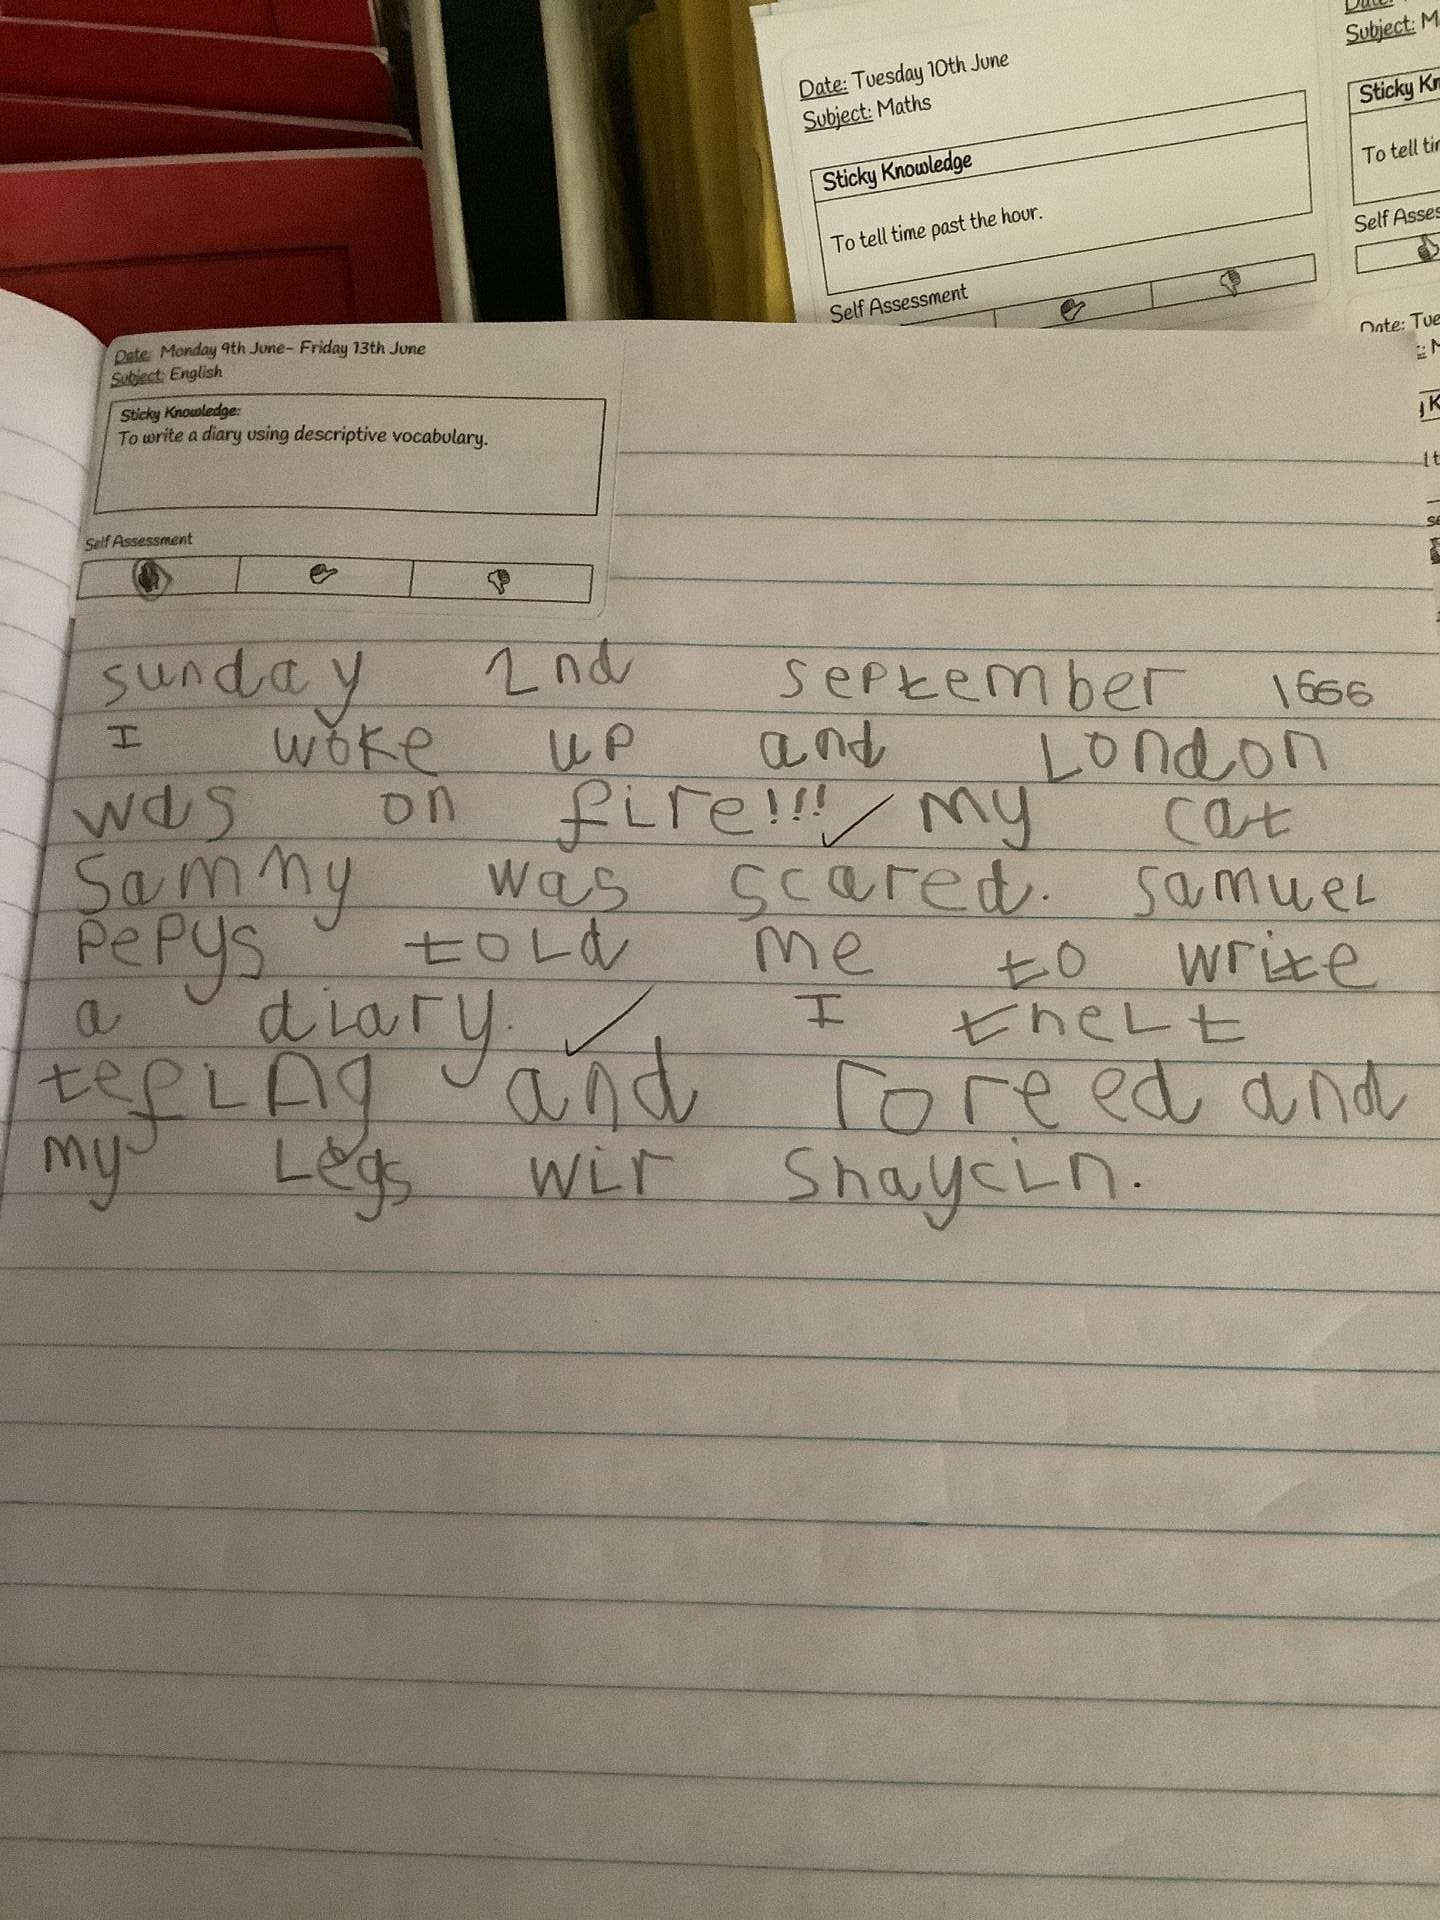 Date: Tuesday 10th June
Subject: Maths
Sticky Knowledge
To tell time past the hour.
Self Assessment
Subject: M
Sticky Kn
To tell tim
Self Asses
Date: Tue
Date: Monday 9th June- Friday 13th June
Subject: English
Sticky Knowledge:
To write a diary using descriptive vocabulary.
Self Assessment
sunday 2nd september 1666
I woke up and London
was on fire!!! My cat
Sammy was scared. Samuel
Pepys told me to write
a diary. I thelt
tefing and roreed and
my Legs wir shaycin.